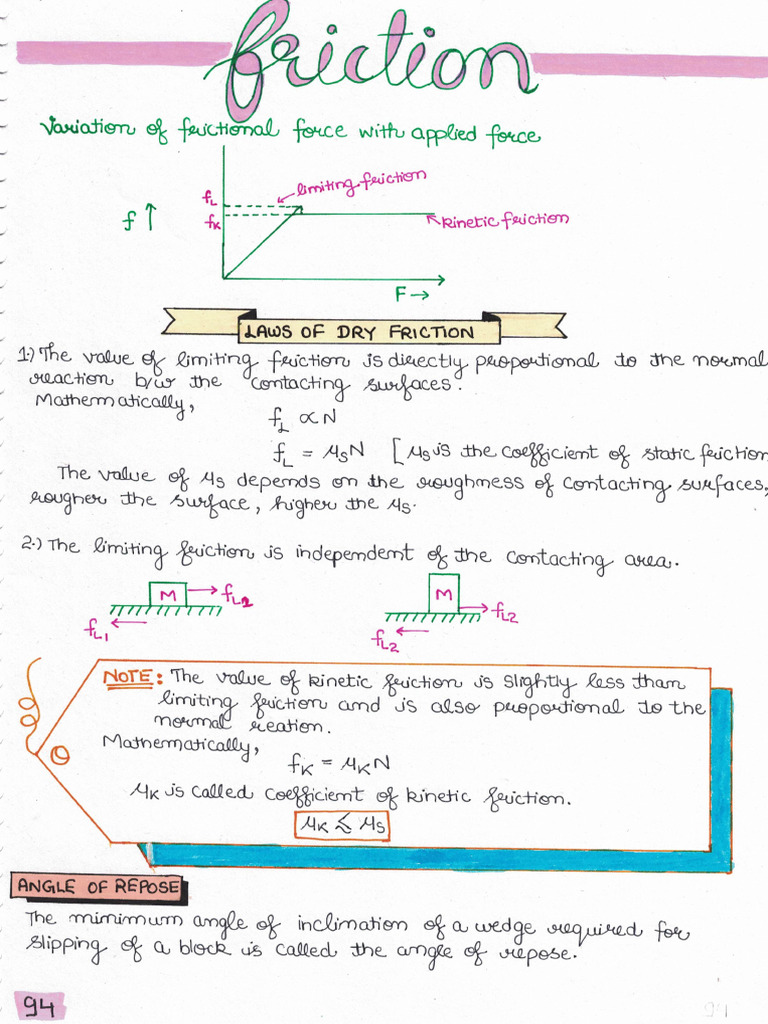 friction
Variation of frictional force with applied force
limiting friction
fL
fK
f ↑
kinetic friction
F →
LAWS OF DRY FRICTION
1.) The value of limiting friction is directly proportional to the normal
reaction b/w the contacting surfaces.
Mathematically,
fL ∝ N
fL = μsN [μs is the coefficient of static friction
The value of μs depends on the roughness of contacting surfaces,
rougher the surface, higher the μs.
2.) The limiting friction is independent of the contacting area.
M → fL2 M
fL1 → fL2
fL2
NOTE: The value of kinetic friction is slightly less than
limiting friction and is also proportional to the
normal reation.
Mathematically,
fK = μKN
μK is called coefficient of kinetic friction.
μK ≲ μs
ANGLE OF REPOSE
The minimum angle of inclination of a wedge required for
slipping of a block is called the angle of repose.
94 94